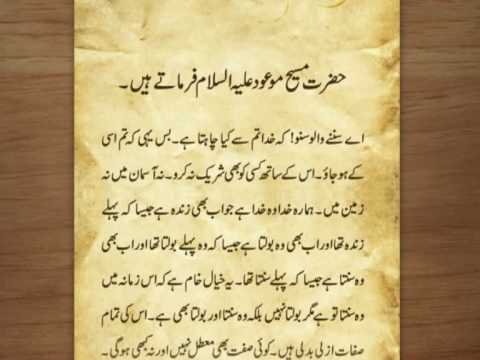 حضرت مسیح موعود علیہ السلام فرماتے ہیں۔
اے سننے والو سنو! کہ خدا تم سے کیا چاہتا ہے۔ بس یہی کہ تم اسی
کے ہو جاؤ۔ اس کے ساتھ کسی کو بھی شریک نہ کرو۔ نہ آسمان میں نہ
زمین میں۔ ہمارہ خدا وہ خدا ہے جو اب بھی زندہ ہے جیسا کہ پہلے
زندہ تھا اور اب بھی وہ بولتا ہے جیسا کہ وہ پہلے بولتا تھا اور اب بھی
وہ سنتا ہے جیسا کہ پہلے سنتا تھا۔ یہ خیال خام ہے کہ اس زمانہ میں
وہ سنتا تو ہے مگر بولتا نہیں بلکہ وہ سنتا اور بولتا بھی ہے۔ اس کی تمام
صفات ازلی بدلی ہیں۔ کوئی صفت بھی معطل نہیں اور نہ کبھی ہو گی۔